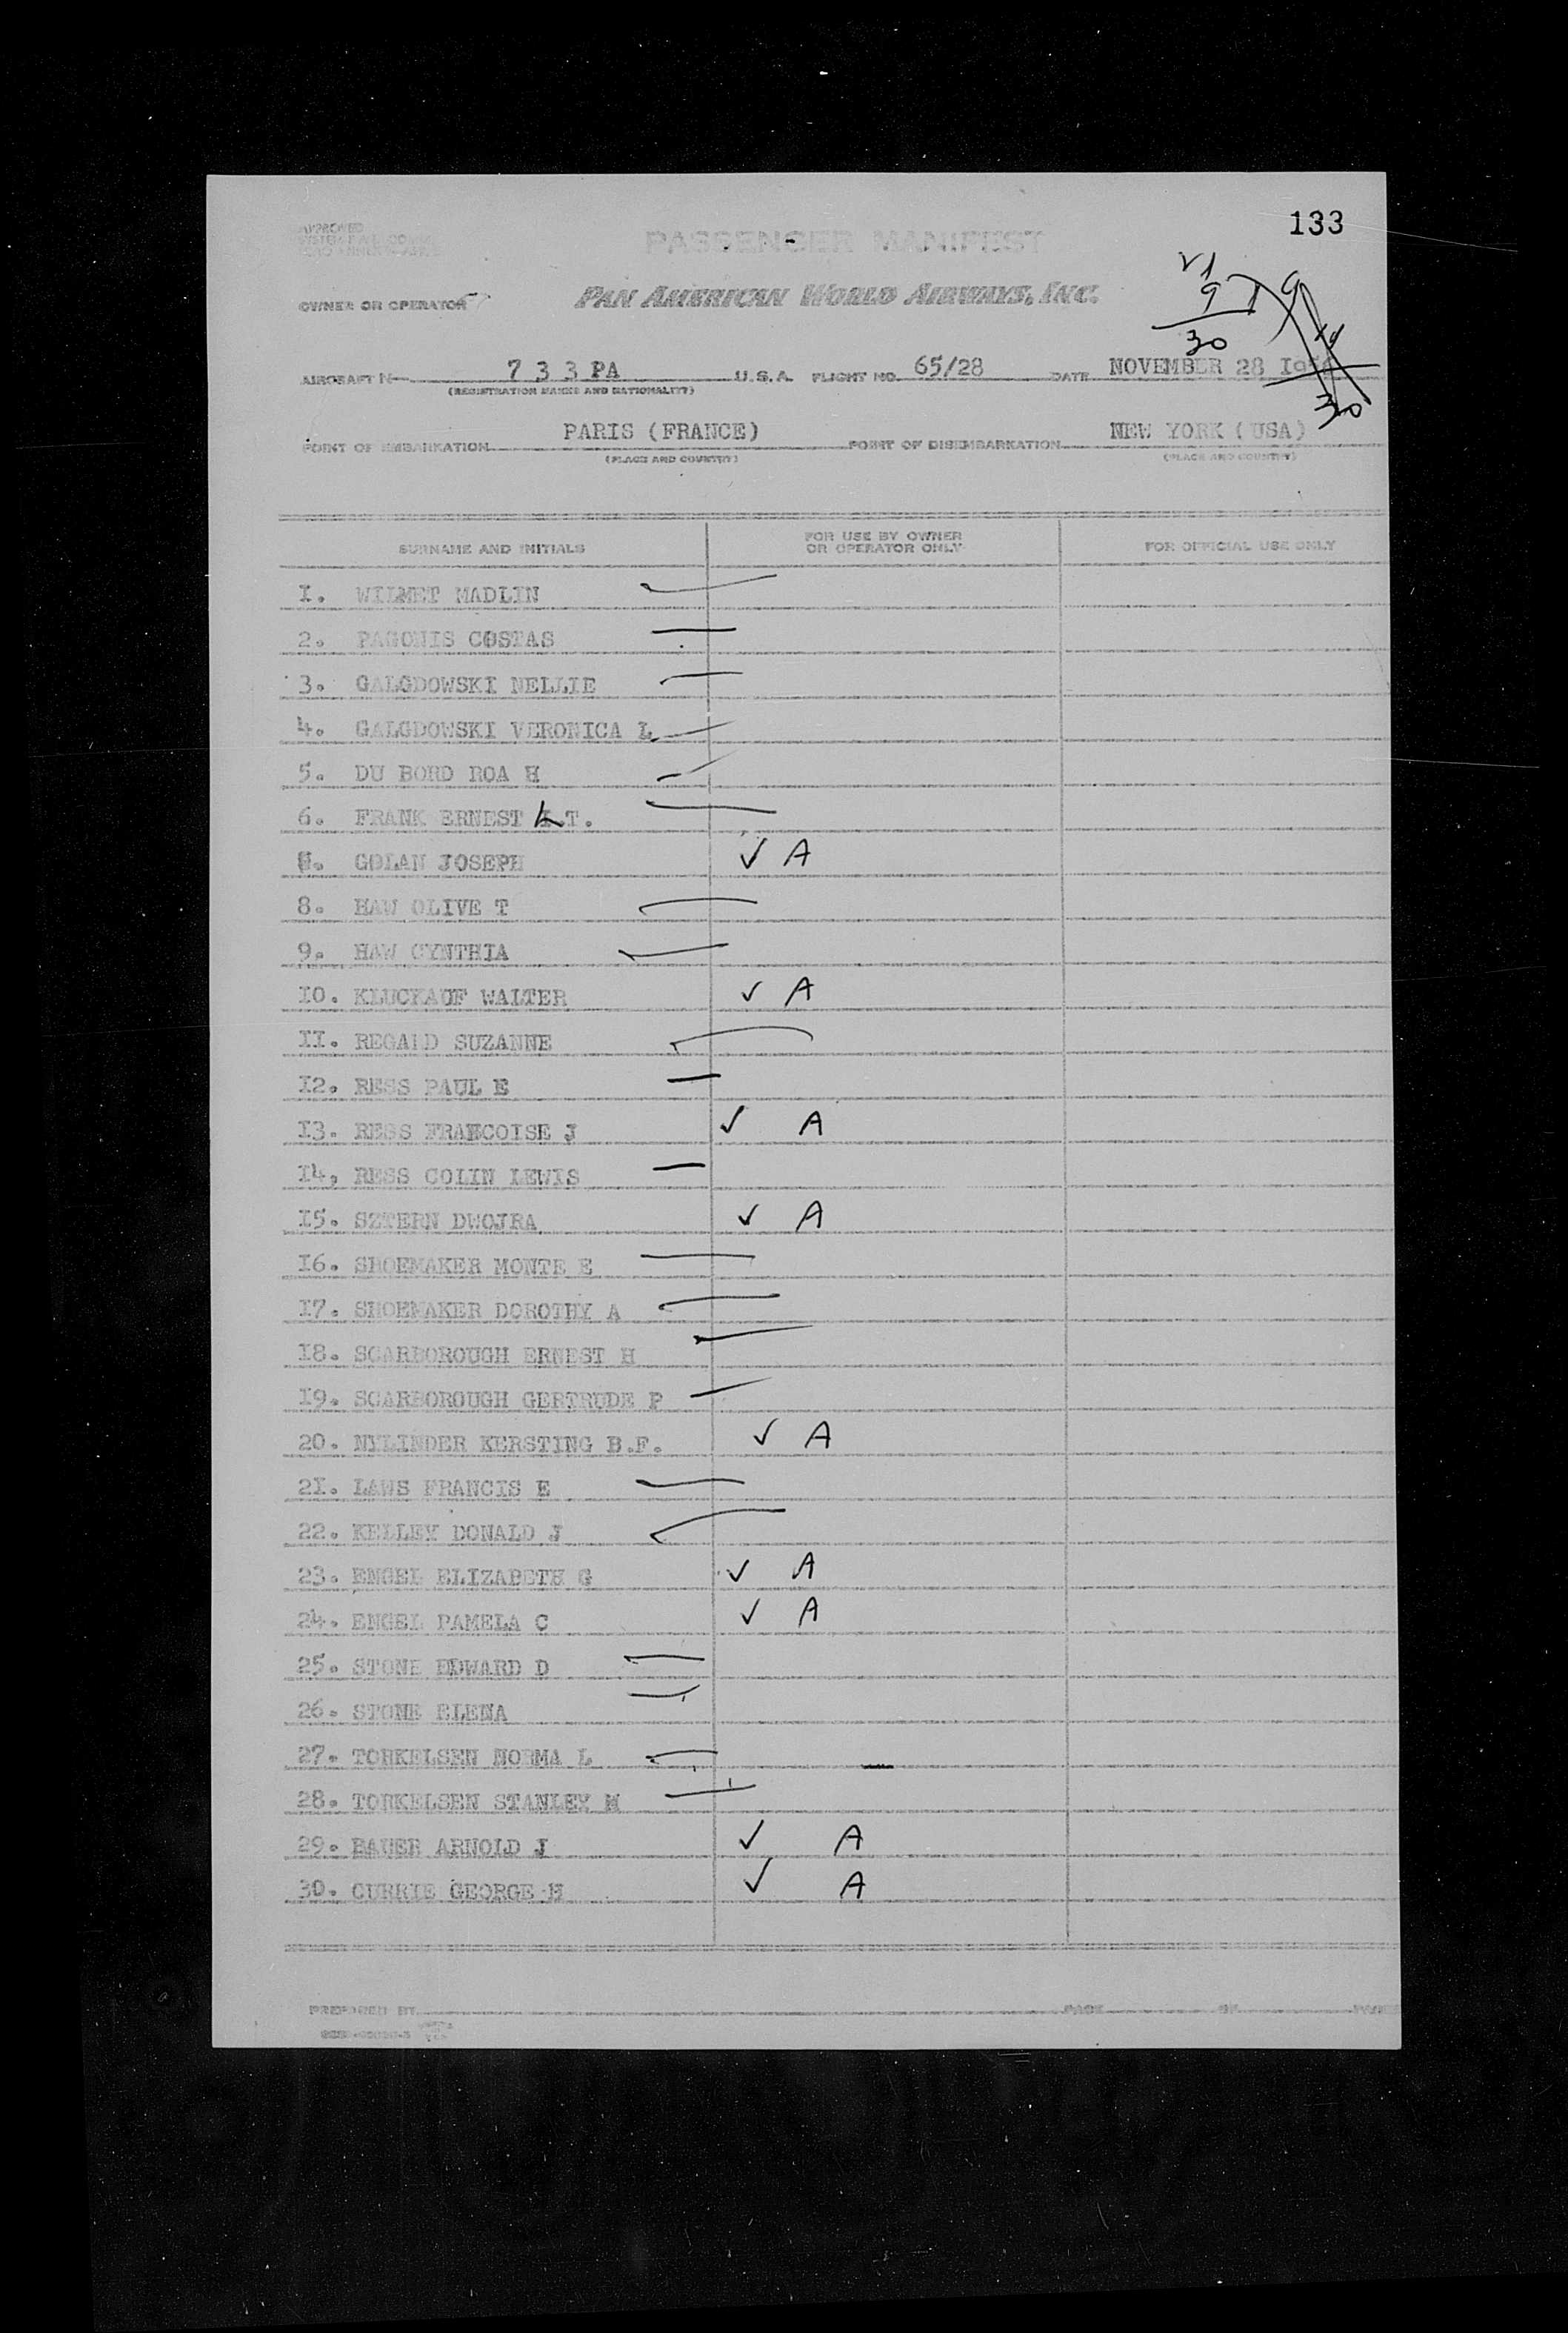 133
APPROVED
PASSENGER MANIFEST
21
9
30
OWNER OR OPERATOR PAN AMERICAN WORLD AIRWAYS, INC.
AIRCRAFT N 7 3 3 PA U.S.A. FLIGHT NO. 65/28 DATE NOVEMBER 28
(REGISTRATION MARKS AND NATIONALITY)
30
POINT OF EMBARKATION PARIS (FRANCE) POINT OF DISEMBARKATION NEW YORK (USA)
(PLACE AND COUNTRY) (PLACE AND COUNTRY)
SURNAME AND INITIALS FOR USE BY OWNER OR OPERATOR ONLY FOR OFFICIAL USE ONLY
I. WILMET MADLIN
2. PAGONIS COSTAS
3. GALGDOWSKI NELLIE
4. GALGDOWSKI VERONICA L
5. DU BORD ROA H
6. FRANK ERNEST L.T.
GOLAN JOSEPH ✓ A
8. HAW OLIVE T
9. HAW CYNTHIA
I0. KLUCKAUF WALTER ✓ A
II. REGARD SUZANNE
I2. RESS PAUL E
I3. RESS FRANCOISE J ✓ A
I4, RESS COLIN LEWIS
I5. SZTERN DWOJRA ✓ A
I6. SHOEMAKER MONTE E
I7. SHOEMAKER DOROTHY A
I8. SCARBOROUGH ERNEST H
I9. SCARBOROUGH GERTRUDE P
20. NYLINDER KERSTING B.F. ✓ A
2I. LAWS FRANCIS E
22. KELLEY DONALD J
23. ENGEL ELIZABETH G ✓ A
24. ENGEL PAMELA C ✓ A
25. STONE EDWARD D
26. STONE ELENA
27. TORKELSEN NORMA L
28. TORKELSEN STANLEY M
29. BAUER ARNOLD J ✓ A
30. CURRIE GEORGE H ✓ A
PREPARED BY PAGE OF PAGES